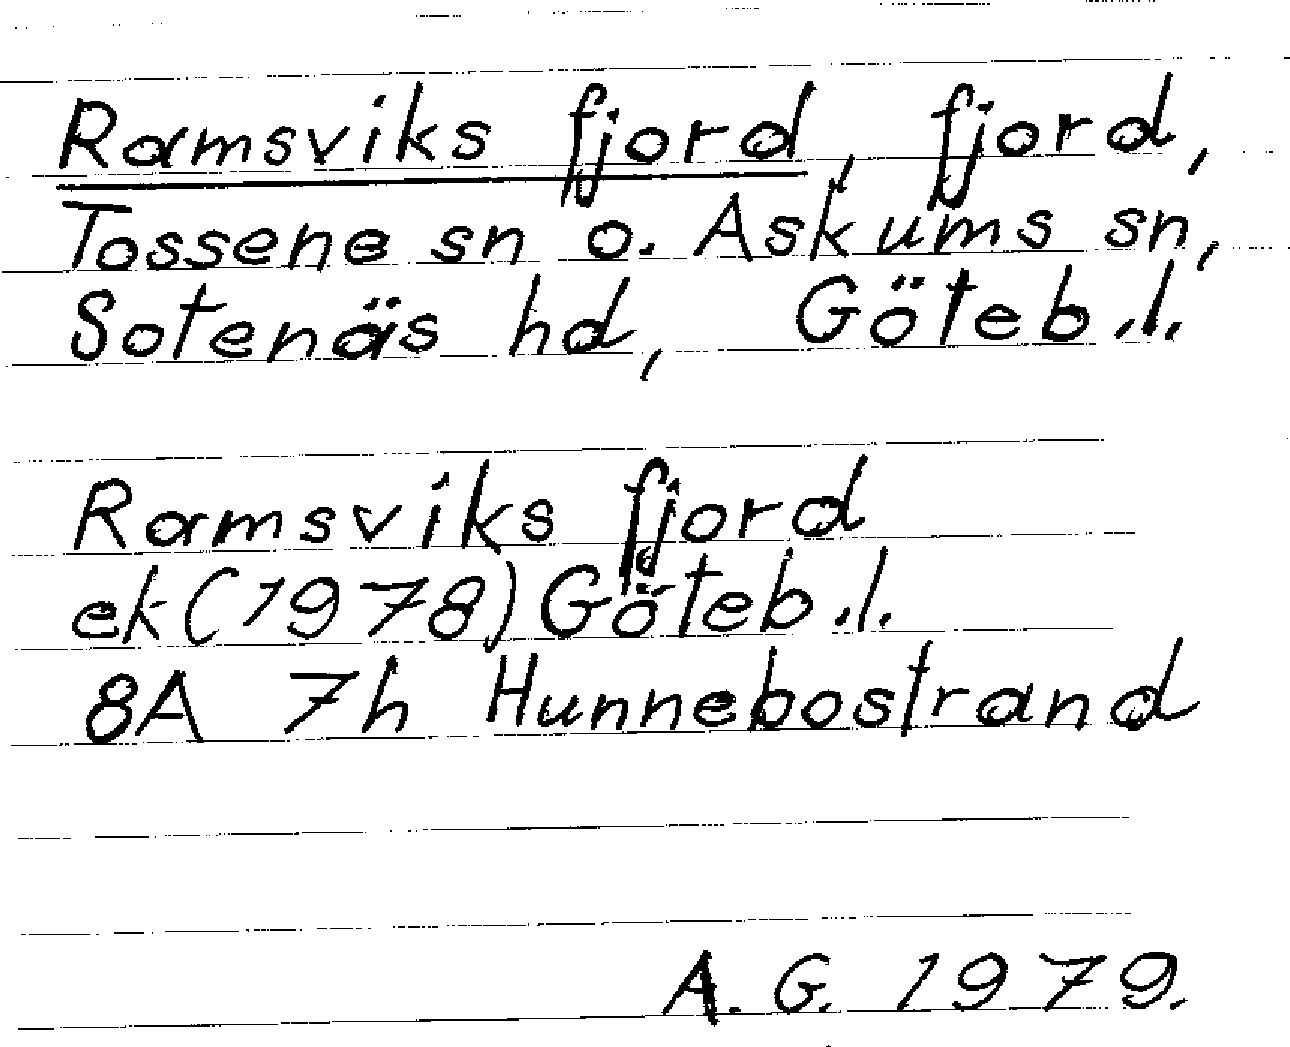 Ramsviks fjord, fjord,
Tossene sn o. Askums sn,
Sotenäs hd, Göteb.l.
Ramsviks fjord
ek(1978) Göteb.l.
8A 7h Hunnebostrand
A.G. 1979.